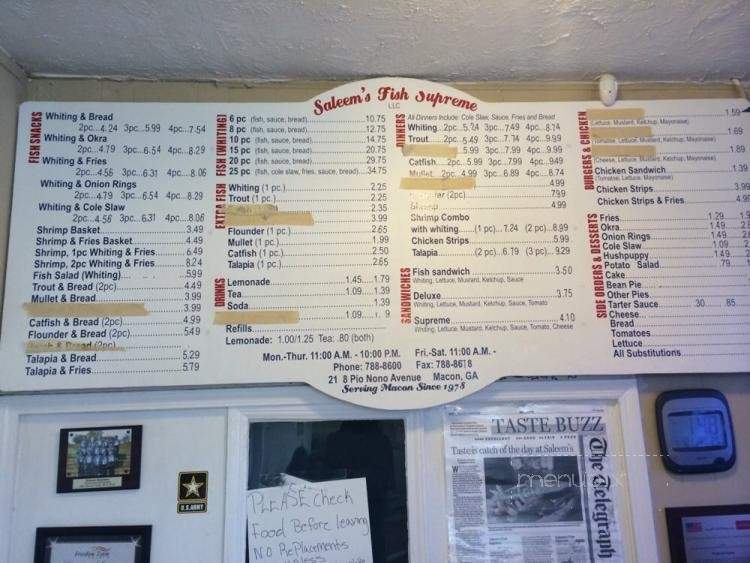 Saleem's Fish Supreme
LLC
FISH SNACKS
Whiting & Bread
2pc...4.24 3pc..5.99 4pc...7.54
Whiting & Okra
2pc...4.79 3pc...6.54 4pc...8.29
Whiting & Fries
2pc...4.56 3pc...6.31 4pc...8.06
Whiting & Onion Rings
2pc...4.79 3pc...6.54 4pc...8.29
Whiting & Cole Slaw
2pc...4.56 3pc...6.31 4pc...8.06
Shrimp Basket 3.49
Shrimp & Fries Basket 4.49
Shrimp, 1pc Whiting & Fries 6.49
Shrimp, 2pc Whiting & Fries 8.24
Fish Salad (Whiting) 5.99
Trout & Bread (2pc) 4.49
Mullet & Bread 3.99
3.99
Catfish & Bread (2pc) 4.99
Flounder & Bread (2pc) 5.49
Talapia & Bread 5.29
Talapia & Fries 5.79
FISH (WHITING)
6 pc (fish, sauce, bread) 10.75
8 pc (fish, sauce, bread) 12.75
10 pc (fish, sauce, bread) 14.75
15 pc (fish, sauce, bread) 20.75
20 pc (fish, sauce, bread) 29.75
25 pc (fish, cole slaw, fries, sauce, bread) 34.75
EXTRA FISH
Whiting (1 pc.) 2.25
Trout (1 pc.) 2.25
2.35
3.99
Flounder (1 pc.) 2.65
Mullet (1 pc.) 1.99
Catfish (1 pc.) 2.50
Talapia (1 pc.) 2.65
DRINKS
Lemonade 1.45 1.79
Tea 1.09 1.39
Soda 1.39
1.09
Refills
Lemonade: 1.00/1.25 Tea: .80 (both)
DINNERS
All Dinners Include: Cole Slaw, Sauce, Fries and Bread
Whiting 2pc...5.74 3pc...7.49 4pc...8.74
Trout 2pc...5.49 3pc...7.74 4pc...9.99
5.99 3pc...7.99 4pc...9.99
Catfish 2pc...5.99 3pc...7.99 4pc...9.49
Mullet 2pc...4.99 3pc...6.89 4pc...8.74
4.99
(2pc) 7.99
4.99
Shrimp Combo
with whiting (1 pc)...7.24 (2 pc)...8.99
Chicken Strips 5.99
Talapia (2 pc)...6.79 (3 pc)...9.29
SANDWICHES
Fish sandwich 3.50
Whiting, Lettuce, Mustard, Ketchup, Sauce
Deluxe 3.75
Whiting, Lettuce, Mustard, Ketchup, Sauce, Tomato
Supreme 4.10
Whiting, Lettuce, Mustard, Ketchup, Sauce, Tomato, Cheese
BURGERS & CHICKEN
1.59
(Lettuce, Mustard, Ketchup, Mayonaise)
1.69
(Tomatoe, Lettuce, Mustard, Ketchup, Mayonaise)
1.89
(Cheese, Lettuce, Mustard, Ketchup, Mayonaise)
Chicken Sandwich 1.39
(Tomatoe, Lettuce, Mustard, Ketchup, Mayonaise)
Chicken Strips 3.99
Chicken Strips & Fries 4.99
SIDE ORDERS & DESSERTS
Fries 1.29
Okra 1.49
Onion Rings 1.49
Cole Slaw 1.09
Hushpuppy 1.49
Potato Salad .79
Cake
Bean Pie
Other Pies
Tarter Sauce 30 85
Cheese
Bread
Tomatoes
Lettuce
All Substitutions
Mon.-Thur. 11:00 A.M. - 10:00 P.M. Fri.-Sat. 11:00 A.M. -
Phone: 788-8600 Fax: 788-8678
21 8 Pio Nono Avenue Macon, GA
Serving Macon Since 1978
U.S. ARMY
PLEASE Check
Food Before leaving
NO RePlacements
TASTE BUZZ
Taste is catch of the day at Saleem's
The Telegraph
menupix